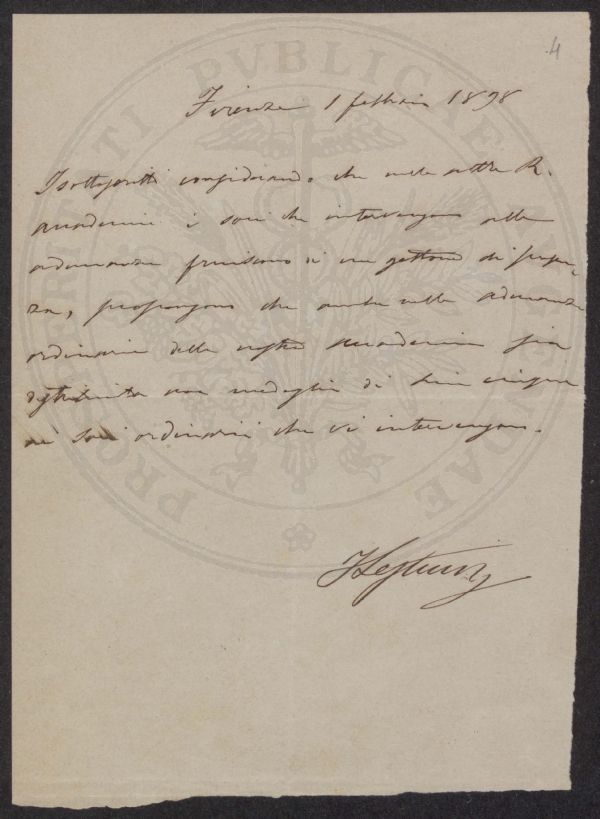 4
Firenze 1 febbraio 1898
I sottoscritti considerando che nelle altre R.
accademie i soci che intervengono alle
adunanze fruiscono di un gettone di presen-
za, propongono che anche nelle adunanze
ordinarie della nostra Accademia sia
distribuita una medaglia di Lire cinque
ai soci ordinari che vi intervengono.
PROSPERITATI PVBLICAE AVGENDAE